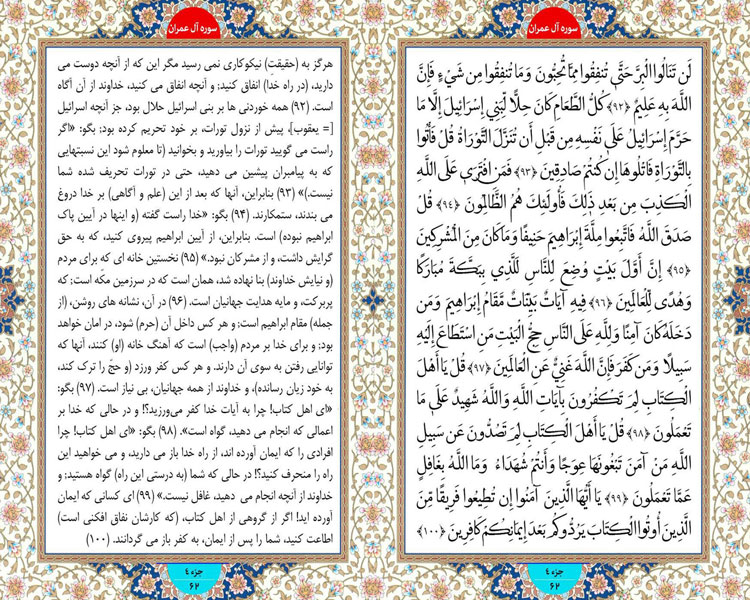 سوره آل عمران
لَن تَنَالُوا الْبِرَّ حَتَّىٰ تُنفِقُوا مِمَّا تُحِبُّونَ وَمَا تُنفِقُوا مِن شَيْءٍ فَإِنَّ
اللَّهَ بِهِ عَلِيمٌ ﴿٩٢﴾ كُلُّ الطَّعَامِ كَانَ حِلًّا لِّبَنِي إِسْرَائِيلَ إِلَّا مَا
حَرَّمَ إِسْرَائِيلُ عَلَىٰ نَفْسِهِ مِن قَبْلِ أَن تُنَزَّلَ التَّوْرَاةُ قُلْ فَأْتُوا
بِالتَّوْرَاةِ فَاتْلُوهَا إِن كُنتُمْ صَادِقِينَ ﴿٩٣﴾ فَمَنِ افْتَرَىٰ عَلَى اللَّهِ
الْكَذِبَ مِن بَعْدِ ذَٰلِكَ فَأُولَٰئِكَ هُمُ الظَّالِمُونَ ﴿٩٤﴾ قُلْ
صَدَقَ اللَّهُ فَاتَّبِعُوا مِلَّةَ إِبْرَاهِيمَ حَنِيفًا وَمَا كَانَ مِنَ الْمُشْرِكِينَ
﴿٩٥﴾ إِنَّ أَوَّلَ بَيْتٍ وُضِعَ لِلنَّاسِ لَلَّذِي بِبَكَّةَ مُبَارَكًا
وَهُدًى لِّلْعَالَمِينَ ﴿٩٦﴾ فِيهِ آيَاتٌ بَيِّنَاتٌ مَّقَامُ إِبْرَاهِيمَ وَمَن
دَخَلَهُ كَانَ آمِنًا وَلِلَّهِ عَلَى النَّاسِ حِجُّ الْبَيْتِ مَنِ اسْتَطَاعَ إِلَيْهِ
سَبِيلًا وَمَن كَفَرَ فَإِنَّ اللَّهَ غَنِيٌّ عَنِ الْعَالَمِينَ ﴿٩٧﴾ قُلْ يَا أَهْلَ
الْكِتَابِ لِمَ تَكْفُرُونَ بِآيَاتِ اللَّهِ وَاللَّهُ شَهِيدٌ عَلَىٰ مَا
تَعْمَلُونَ ﴿٩٨﴾ قُلْ يَا أَهْلَ الْكِتَابِ لِمَ تَصُدُّونَ عَن سَبِيلِ
اللَّهِ مَنْ آمَنَ تَبْغُونَهَا عِوَجًا وَأَنتُمْ شُهَدَاءُ وَمَا اللَّهُ بِغَافِلٍ
عَمَّا تَعْمَلُونَ ﴿٩٩﴾ يَا أَيُّهَا الَّذِينَ آمَنُوا إِن تُطِيعُوا فَرِيقًا مِّنَ
الَّذِينَ أُوتُوا الْكِتَابَ يَرُدُّوكُم بَعْدَ إِيمَانِكُمْ كَافِرِينَ ﴿١٠٠﴾
جزء ٤
٦٢
سوره آل عمران
هرگز به (حقیقتِ) نیکوکاری نمی رسید مگر این که از آنچه دوست می
دارید، (در راه خدا) انفاق کنید؛ و آنچه انفاق می کنید، خداوند از آن آگاه
است. (۹۲) همه خوردنی ها بر بنی اسرائیل حلال بود، جز آنچه اسرائیل
[= یعقوب]، پیش از نزول تورات، بر خود تحریم کرده بود؛ بگو: «اگر
راست می گویید تورات را بیاورید و بخوانید (تا معلوم شود این نسبتهایی
که به پیامبران پیشین می دهید، حتی در تورات تحریف شده شما
نیست.)» (۹۳) بنابراین، آنها که بعد از این (علم و آگاهی) بر خدا دروغ
می بندند، ستمکارند. (۹۴) بگو: «خدا راست گفته (و اینها در آیین پاک
ابراهیم نبوده) است. بنابراین، از آیین ابراهیم پیروی کنید، که به حق
گرایش داشت، و از مشرکان نبود.» (۹۵) نخستین خانه ای که برای مردم
(و نیایش خداوند) بنا نهاده شد، همان است که در سرزمین مکّه است؛ که
پربرکت، و مایه هدایت جهانیان است. (۹۶) در آن، نشانه های روشن، (از
جمله) مقام ابراهیم است؛ و هر کس داخل آن (حرم) شود، در امان خواهد
بود؛ و برای خدا بر مردم (واجب) است که آهنگ خانه (او) کنند، آنها که
توانایی رفتن به سوی آن دارند. و هر کس کفر ورزد (و حجّ را ترک کند،
به خود زیان رسانده)، و خداوند از همه جهانیان، بی نیاز است. (۹۷) بگو:
«ای اهل کتاب! چرا به آیات خدا کفر می‌ورزید؟! و در حالی که خدا بر
اعمالی که انجام می دهید، گواه است». (۹۸) بگو: «ای اهل کتاب! چرا
افرادی را که ایمان آورده اند، از راه خدا باز می دارید، و می خواهید این
راه را منحرف کنید؟! در حالی که شما (به درستی این راه) گواه هستید؛ و
خداوند از آنچه انجام می دهید، غافل نیست.» (۹۹) ای کسانی که ایمان
آورده اید! اگر از گروهی از اهل کتاب، (که کارشان نفاق افکنی است)
اطاعت کنید، شما را پس از ایمان، به کفر باز می گردانند. (۱۰۰)
جزء ٤
٦٢